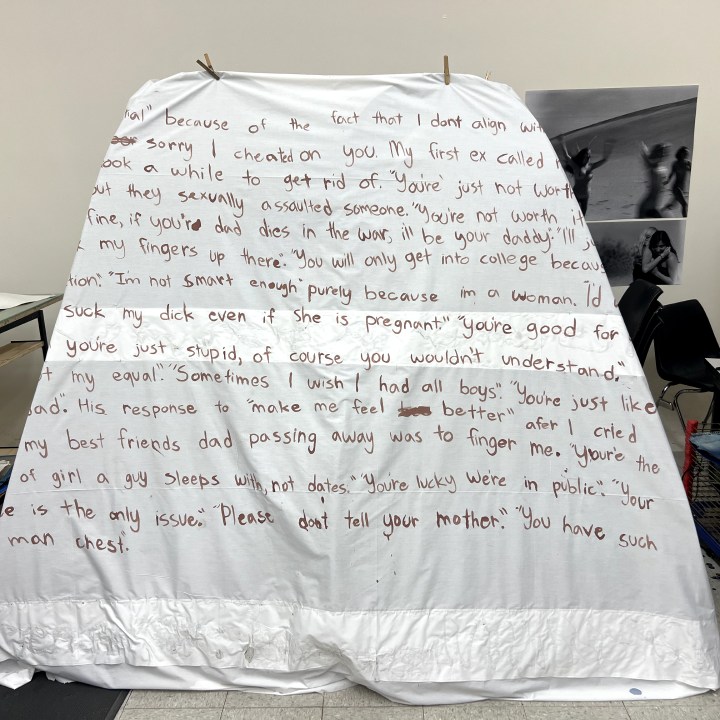 because of the fact that I dont align
sorry I cheated on you. My first ex called
a while to get rid of. "You're just not worth
they sexually assaulted someone." "You're not worth it
fine, if you're dad dies in the war, ill be your daddy." "I'll
my fingers up there." "You will only get into college
"I'm not smart enough purely because im a woman. I'd
suck my dick even if she is pregnant." "you're good for
you're just stupid, of course you wouldn't understand."
my equal." "Sometimes I wish I had all boys." "You're just like
His response to "make me feel better" afer I cried
my best friends dad passing away was to finger me. "You're the
of girl a guy sleeps with, not dates." "You're lucky we're in public." "Your
is the only issue." "Please dont tell your mother." "You have such
man chest."